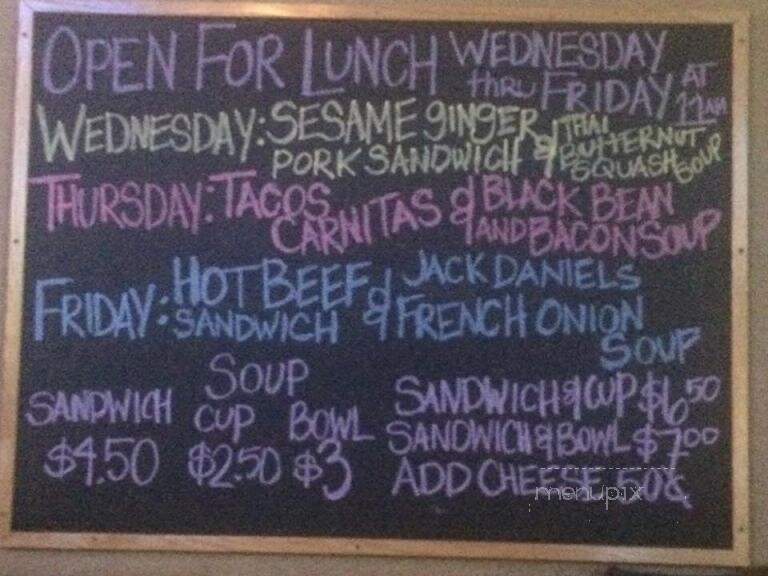 OPEN FOR LUNCH WEDNESDAY
THRU FRIDAY AT
11AM
WEDNESDAY: SESAME GINGER
PORK SANDWICH & THAI
BUTTERNUT
SQUASH SOUP
THURSDAY: TACOS
CARNITAS & BLACK BEAN
AND BACON SOUP
FRIDAY: HOT BEEF
SANDWICH & JACK DANIELS
FRENCH ONION
SOUP
SANDWICH
$4.50
SOUP
CUP BOWL
$2.50 $3
SANDWICH & CUP $6.50
SANDWICH & BOWL $7.00
ADD CHEESE 50¢
menupix